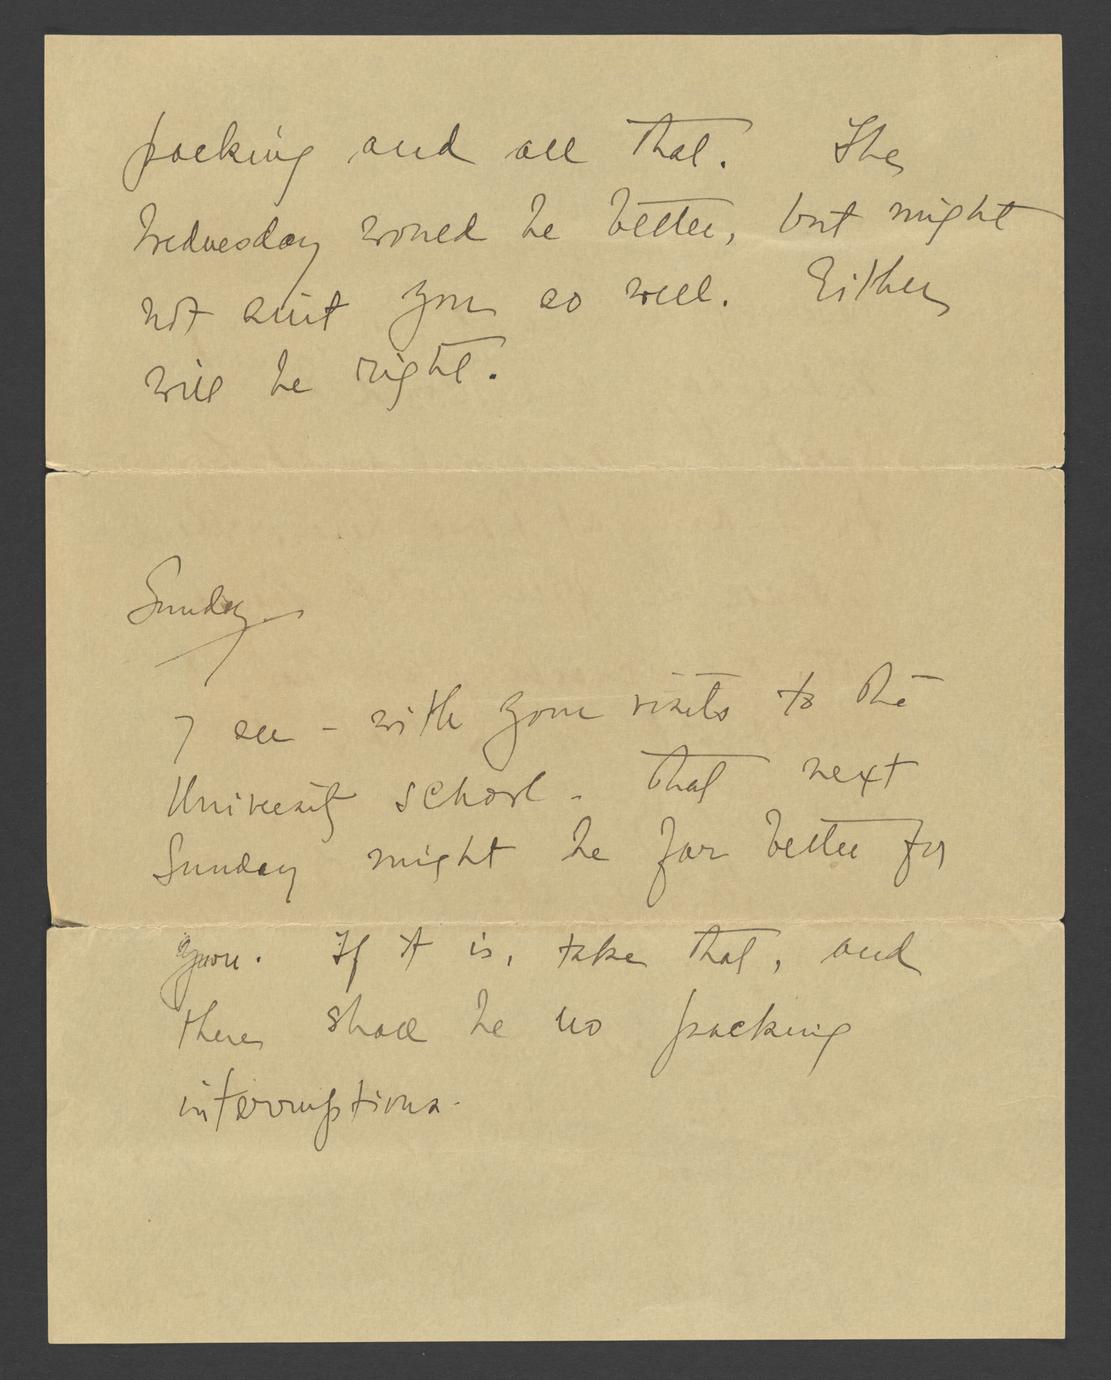 packing and all that. The
Wednesday would be better, but might
not suit you so well. Either
will be right.
Sunday
I see - with your visits to the
University school - that next
Sunday might be far better for
you. If it is, take that, and
there shall be no packing
interruptions.